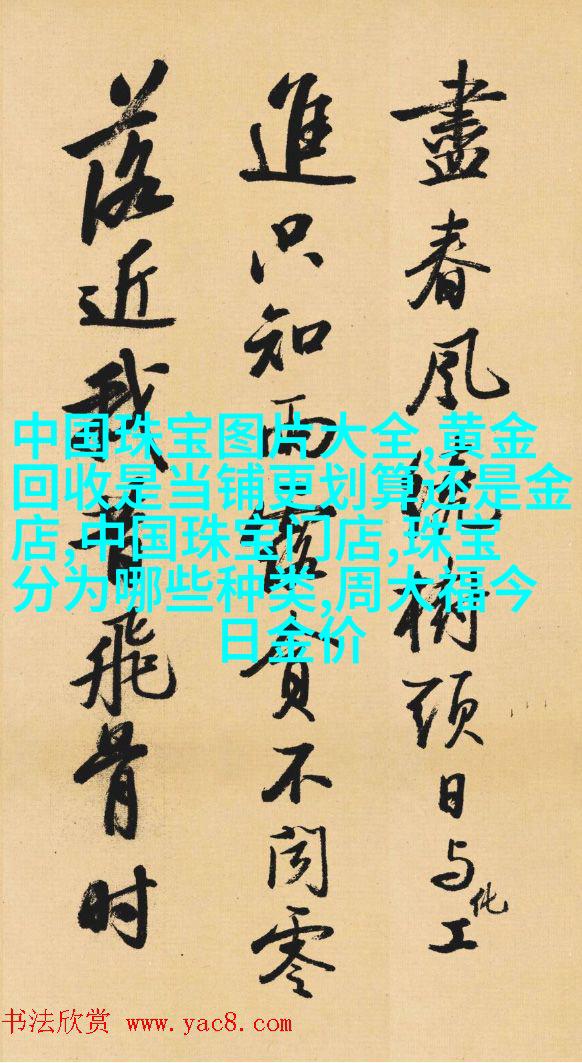 盡春風繞樹頭日与化工
進只知雨露貪不聞零
落近我昔飛骨时
中国珠宝图片大全,黄金
回收是当铺更划算还是金
店,中国珠宝门店,珠宝
分为哪些种类,周大福今
日金价
书法欣赏 www.yac8.com